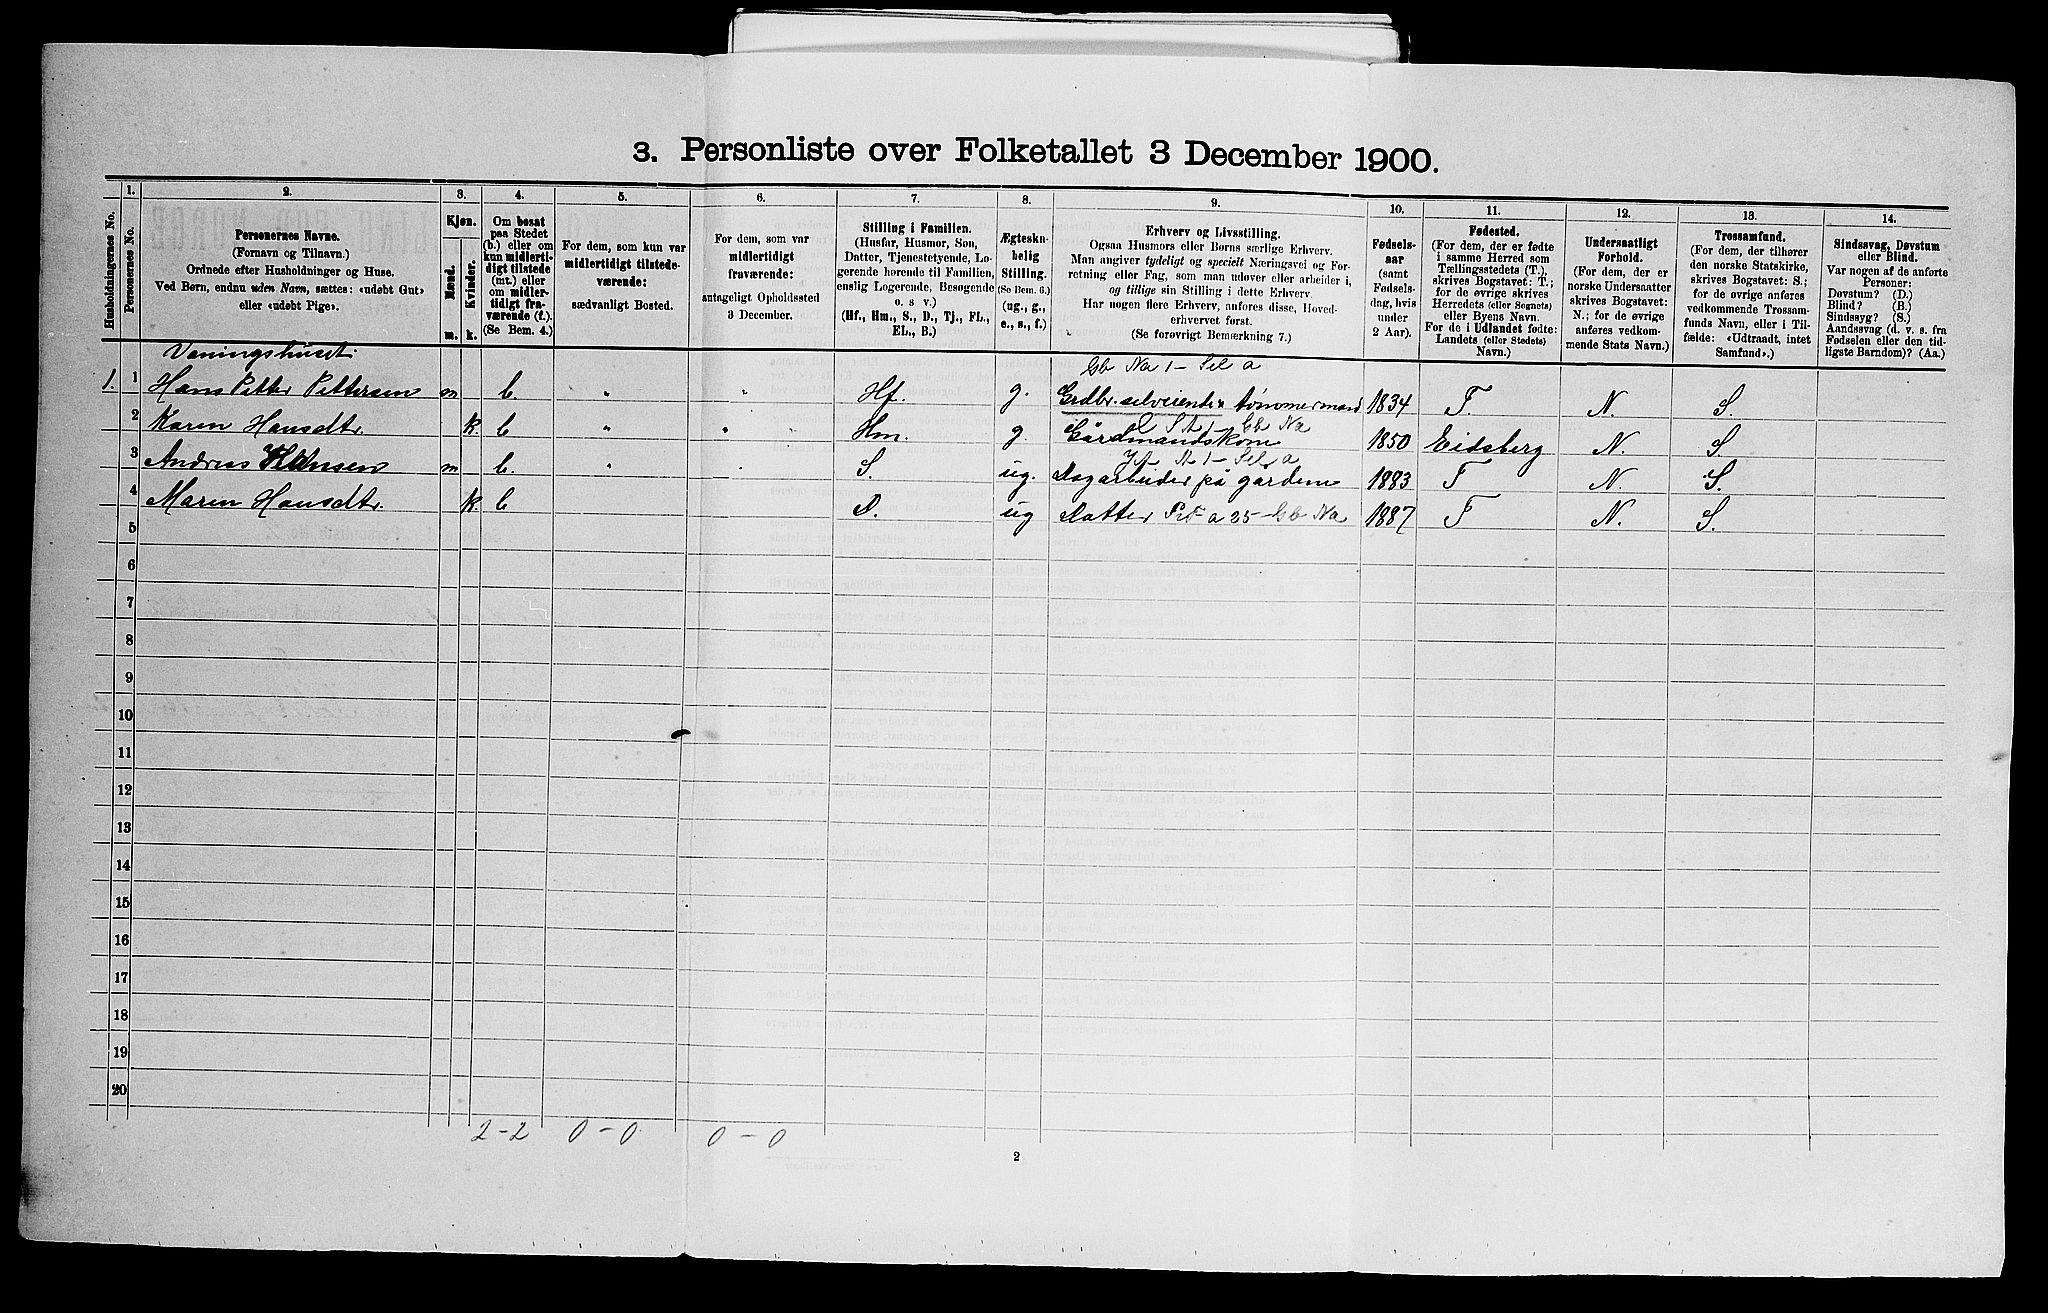 3. Personliste over Folketallet 3 December 1900.
Husholdningernes No.
1.
Personernes No.
2.
Personernes Navne.
(Fornavn og Tilnavn.)
Ordnede efter Husholdninger og Huse.
Ved Børn, endnu uden Navn, sættes: «udøbt Gut»
eller «udøbt Pige».
3.
Kjøn.
Mænd.
Kvinder.
m. k.
4.
Om bosat
paa Stedet
(b.) eller om
kun midlerti-
digt tilstede
(mt.) eller
om midler-
tidigt fra-
værende (f.).
(Se Bem. 4.)
5.
For dem, som kun var
midlertidigt tilstede-
værende:
sædvanligt Bosted.
6.
For dem, som var
midlertidigt
fraværende:
antageligt Opholdssted
3 December.
7.
Stilling i Familien.
(Husfar, Husmor, Søn,
Datter, Tjenestetyende, Lo-
gerende hørende til Familien,
enslig Logerende, Besøgende
o. s v.)
(Hf., Hm., S., D., Tj., FL.,
EL., B.)
8.
Ægteska-
belig
Stilling.
(Se Bem. 6.)
(ug., g.,
e., s., f.)
9.
Erhverv og Livsstilling.
Ogsaa Husmors eller Børns særlige Erhverv.
Man angiver tydeligt og specielt Næringsvei og For-
retning eller Fag, som man udøver eller arbeider i,
og tillige sin Stilling i dette Erhverv.
Har nogen flere Erhverv, anføres disse, Hoved-
erhvervet først.
(Se forøvrigt Bemærkning 7.)
10.
Fødsels-
aar
(samt
Fødsels-
dag, hvis
under
2 Aar).
11.
Fødested.
(For dem, der er fødte
i samme Herred som
Tællingsstedets (T.),
skrives Bogstavet: T.;
for de øvrige skrives
Herredets (eller Sognets)
eller Byens Navn.
For de i Udlandet fødte:
Landets (eller Stedets)
Navn.)
12.
Undersaatligt
Forhold.
(For dem, der er
norske Undersaatter
skrives Bogstavet:
N.; for de øvrige
anføres vedkom-
mende Stats Navn.)
13.
Trossamfund.
(For dem, der tilhører
den norske Statskirke,
skrives Bogstavet: S.;
for de øvrige anføres
vedkommende Trossam-
funds Navn, eller i Til-
fælde: «Udtraadt, intet
Samfund».)
14.
Sindssvag, Døvstum
eller Blind.
Var nogen af de anførte
Personer:
Døvstum? (D.)
Blind? (B.)
Sindssyg? (S.)
Aandssvag (d. v. s. fra
Fødselen eller den tid-
ligste Barndom)? (Aa.)
Vaningshuset:
Gb Na 1 - Sel a
1. 1 Hans Petter Pettersen m b. " " Hf. g. Grdbr. selveiende & tømmermand 1834 T. N. S.
2 Karen Hansdtr. k. b " " Hm. g. Gårdmandskone 1850 Eidsberg N. S.
3 Andreas Hansen m b. " S. ug. Dagarbeider på gården 1883 T N. S.
4 Maren Hansdtr. k. b D. ug Datter Gb Na 1887 T N. S.
5
6
7
8
9
10
11
12
13
14
15
16
17
18
19
20
2 - 2 0 - 0 0 - 0
2